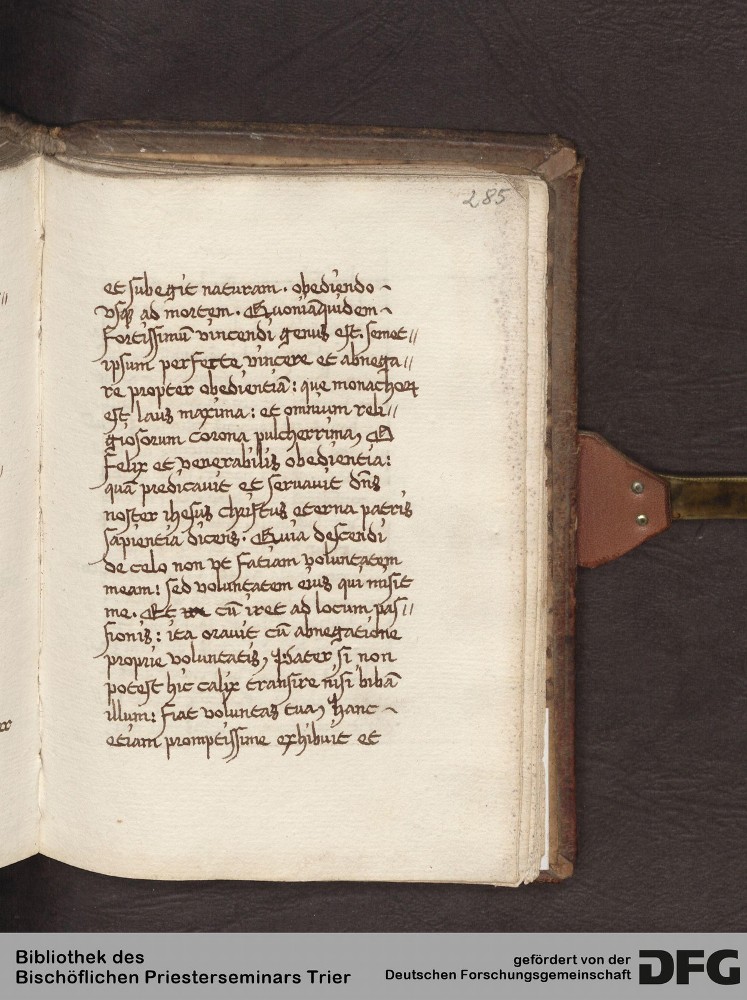 285
et subegit naturam. obediendo ~
vsqꝫ ad mortem. Quoniāquidem ~
fortissimū vincendi genus est. semet//
ipsum perfecte vincere et abnega//
re propter obedientiā: que monachoꝝ
est laus maxima: et omnium reli//
giosorum corona pulcherrima, O
felix et venerabilis obedientia:
quā predicauit et seruauit dn̄s
noster ihesus christus eterna patris
sapientia dicens. Quia descendi
de celo non vt fatiam voluntatem
meam: sed voluntatem eius qui misit
me. Et cū iret ad locum pas//
sionis: ita orauit cū abnegatione
proprie voluntatis, Pater si non
potest hic calix transire nisi bibā
illum: fiat voluntas tua, Hanc ~
etiam promptissime exhibuit et
Bibliothek des
Bischöflichen Priesterseminars Trier
gefördert von der
Deutschen Forschungsgemeinschaft
DFG